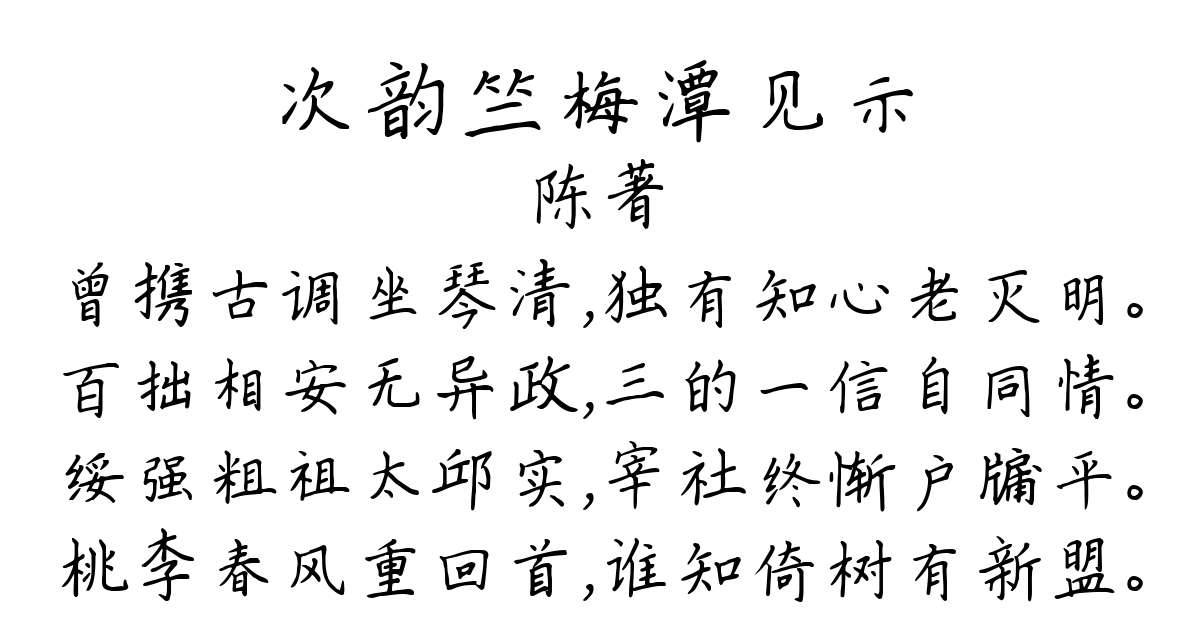 次韵竺梅潭见示
陈著
曾携古调坐琴清,独有知心老灭明。
百拙相安无异政,三的一信自同情。
绥强粗祖太邱实,宰社终惭户牖平。
桃李春风重回首,谁知倚树有新盟。